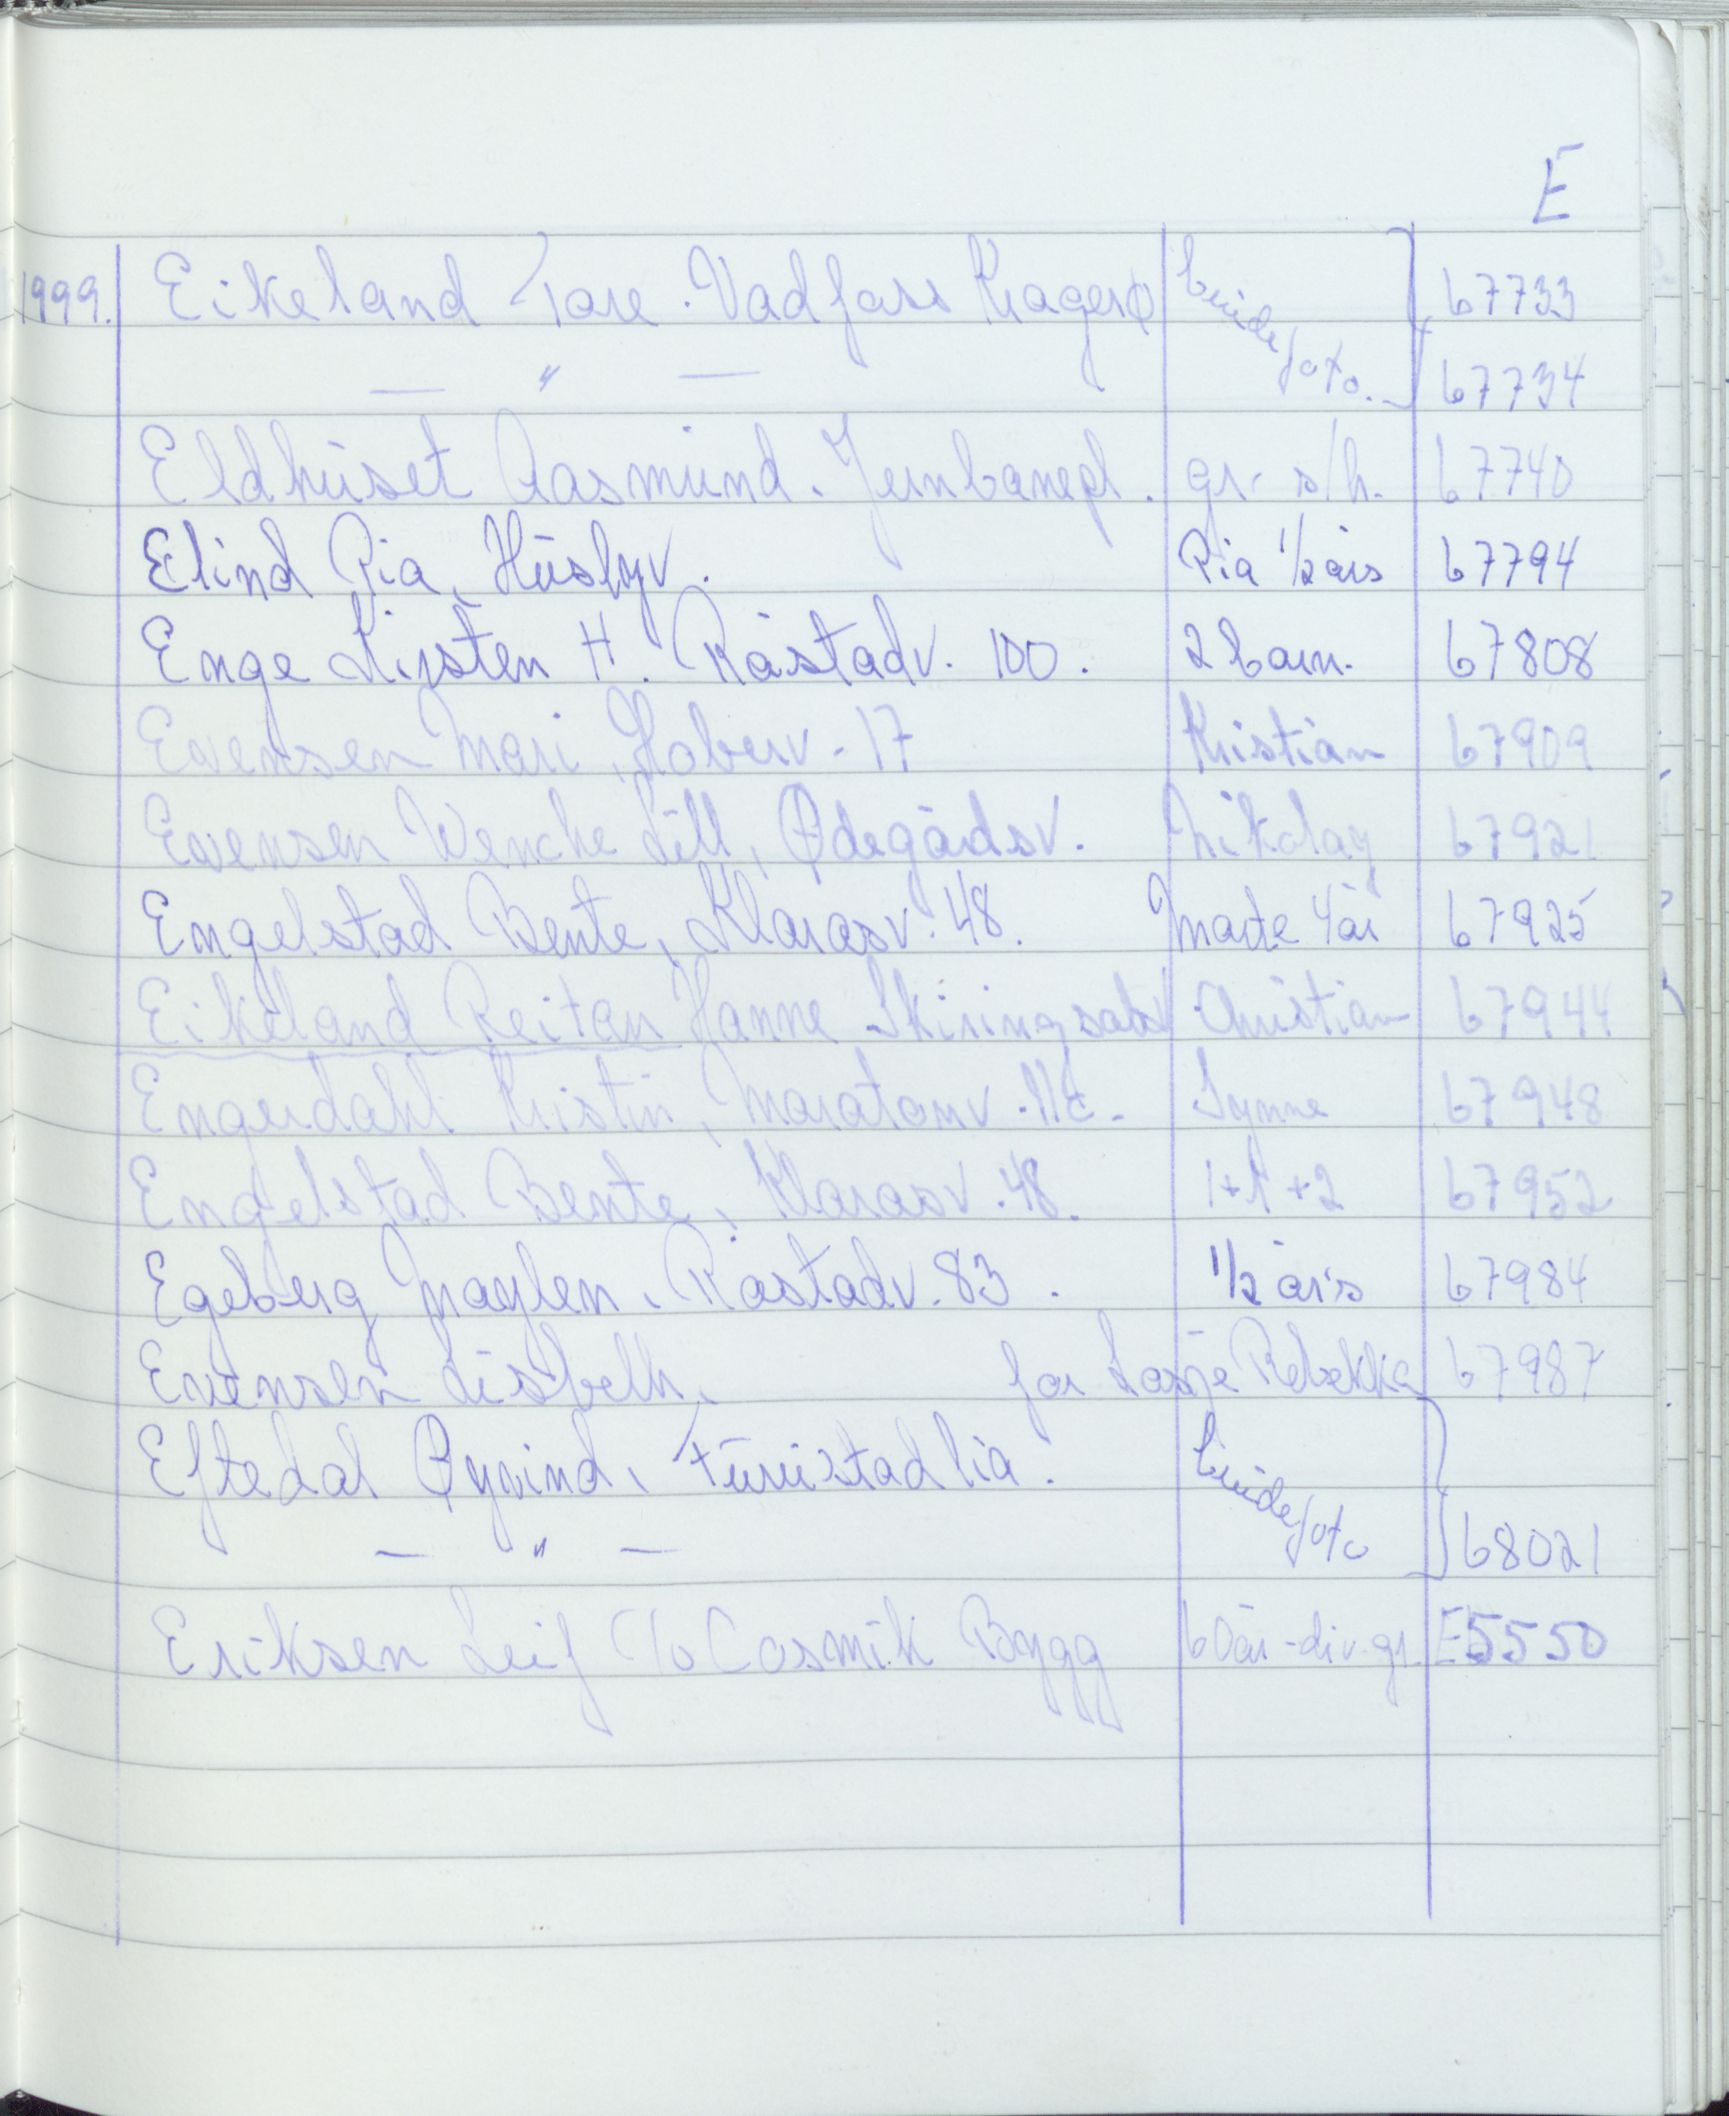 E
1999. Eikeland Tore. Vadfoss Kragerø brudefoto. 67733
— " — 67734
Eldhuset Aasmund. Jernbanegt. gr. s/h. 67740
Elind Pia, Husbyv. Pia 1/2 års 67794
Enge Kirsten H. Råstadv. 100. 2 barn. 67808
Evensen Mari, Haberv. 17 Kristian 67909
Evensen Wenche Lill, Ødegårdsv. Nikolay 67921
Engelstad Bente, Klarasv. 48. Marte 4 år 67925
Eikeland Reitan Hanne Skiringsalsv Christian 67944
Engerdahl Kristin, Maratonv. 11c. Synne 67948
Engelstad Bente, Klarasv. 48. 1+1+2 67952
Egeberg Maylen, Råstadv. 83. 1/2 år's 67984
Evensen Lisbeth. for Rebekka 67987
Eftedal Øyvind, Furustadlia. brudefoto
— " — 68021
Eriksen Leif C/o Cosmik Bygg 60 år - div. gr. E5550